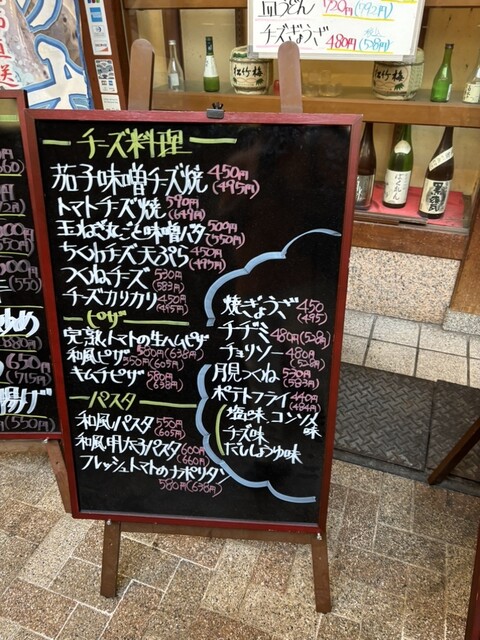 皿うどん 720円(792円)
チーズぎょうざ 480円(528円)
松竹梅
松竹梅
直送
ーチーズ料理ー
茄子味噌チーズ焼 450円(495円)
トマトチーズ焼 590円(649円)
玉ねぎ丸ごと味噌バタ 500円(550円)
ちくわチーズ天ぷら 450円(495円)
つくねチーズ 530円(583円)
チーズカリカリ 450円(495円)
ーピザー
完熟トマトの生ハムピザ 580円(638円)
和風ピザ 550円(605円)
キムチピザ 580円(638円)
ーパスタ
和風パスタ 550円(605円)
和風明太子パスタ 600円(660円)
フレッシュトマトのナポリタン
580円(638円)
焼ぎょうざ 450(495)
チヂミ 480円(528円)
チョリソー 480円(528円)
月見つくね 530円(583円)
ポテトフライ 440円(484円)
塩味、コンソメ味
チーズ味
だししょうゆ味